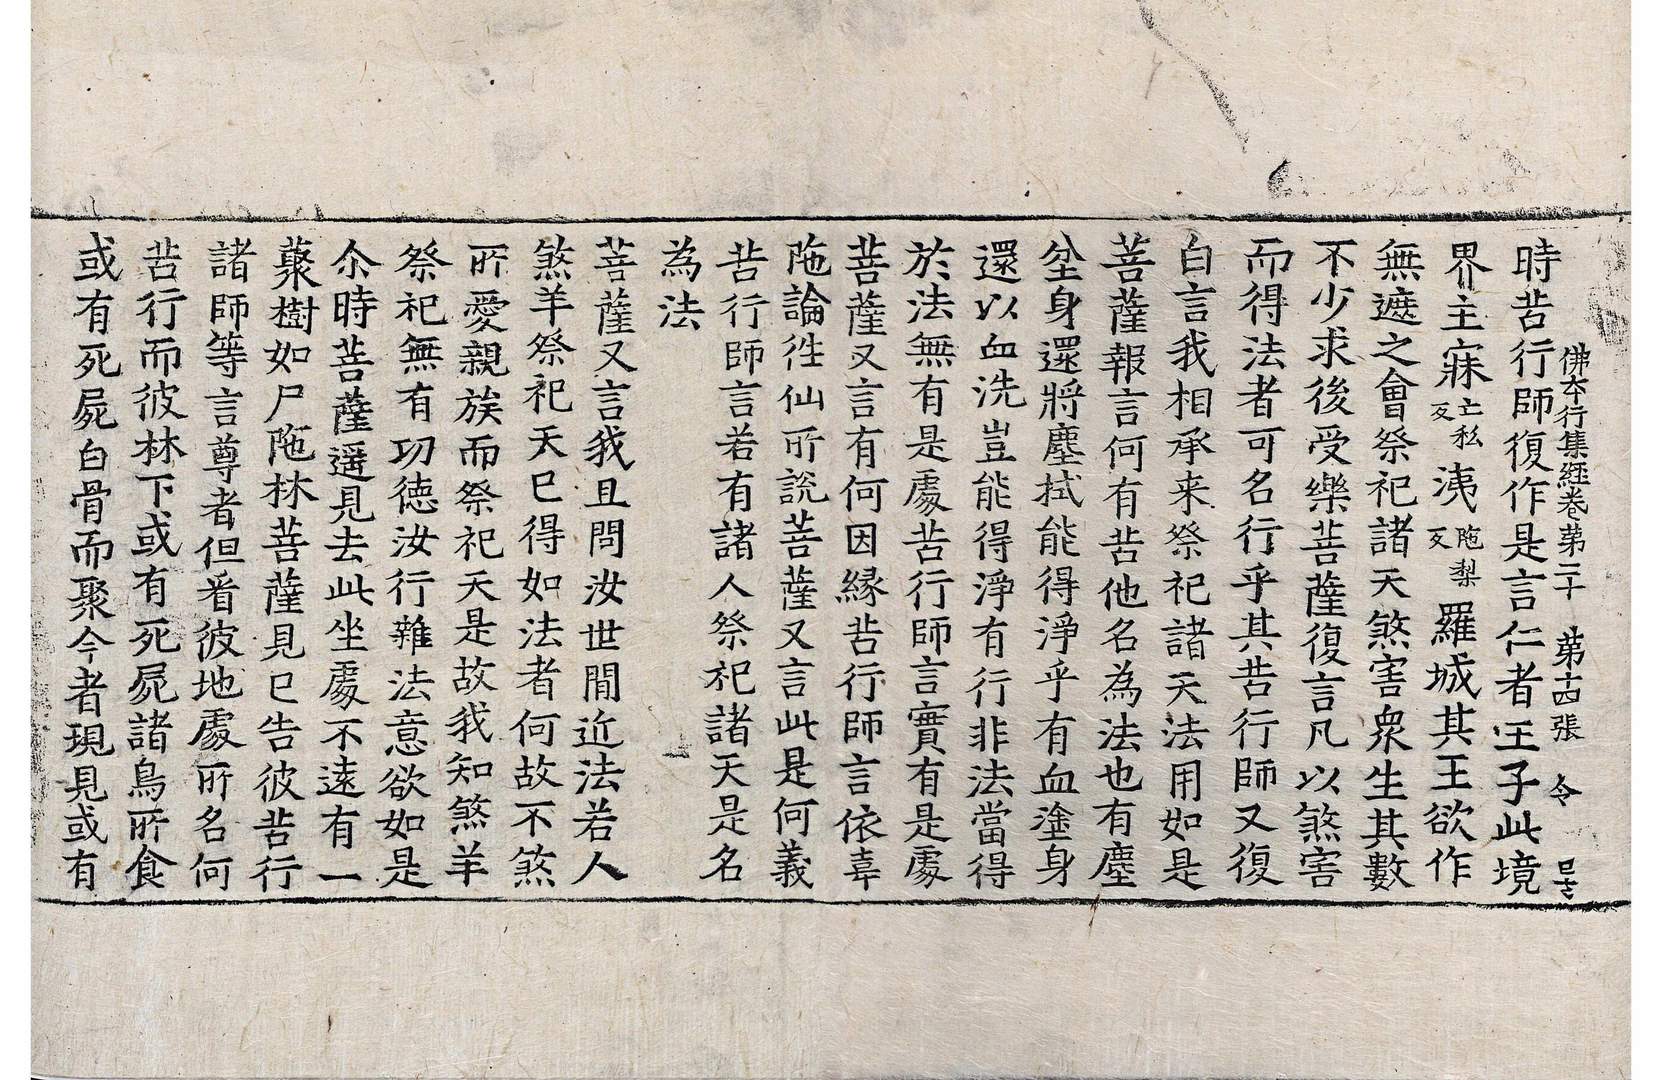 佛本行集經卷第二十 第十四張 令
時苦行師復作是言仁者王子此境
界主寐亡私反洟陁梨反羅城其王欲作
無遮之會祭祀諸天煞害衆生其數
不少求後受樂菩薩復言凡以煞害
而得法者可名行乎其苦行師又復
白言我相承来祭祀諸天法用如是
菩薩報言何有苦他名為法也有塵
坌身還將塵拭能得淨乎有血塗身
還以血洗豈能得淨有行非法當得
於法無有是處苦行師言實有是處
菩薩又言有何因縁苦行師言依韋
陁論徃仙所說菩薩又言此是何義
苦行師言若有諸人祭祀諸天是名
為法
菩薩又言我且問汝世間近法若人
煞羊祭祀天已得如法者何故不煞
所愛親族而祭祀天是故我知煞羊
祭祀無有功德汝行雜法意欲如是
尒時菩薩遥見去此坐處不遠有一
藂樹如尸陁林菩薩見已告彼苦行
諸師等言尊者但看彼地處所名何
苦行而彼林下或有死屍諸鳥所食
或有死屍白骨而聚今者現見或有